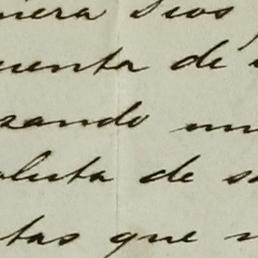 nera Dios
uenta de
zando un
oluta de s
tas que n